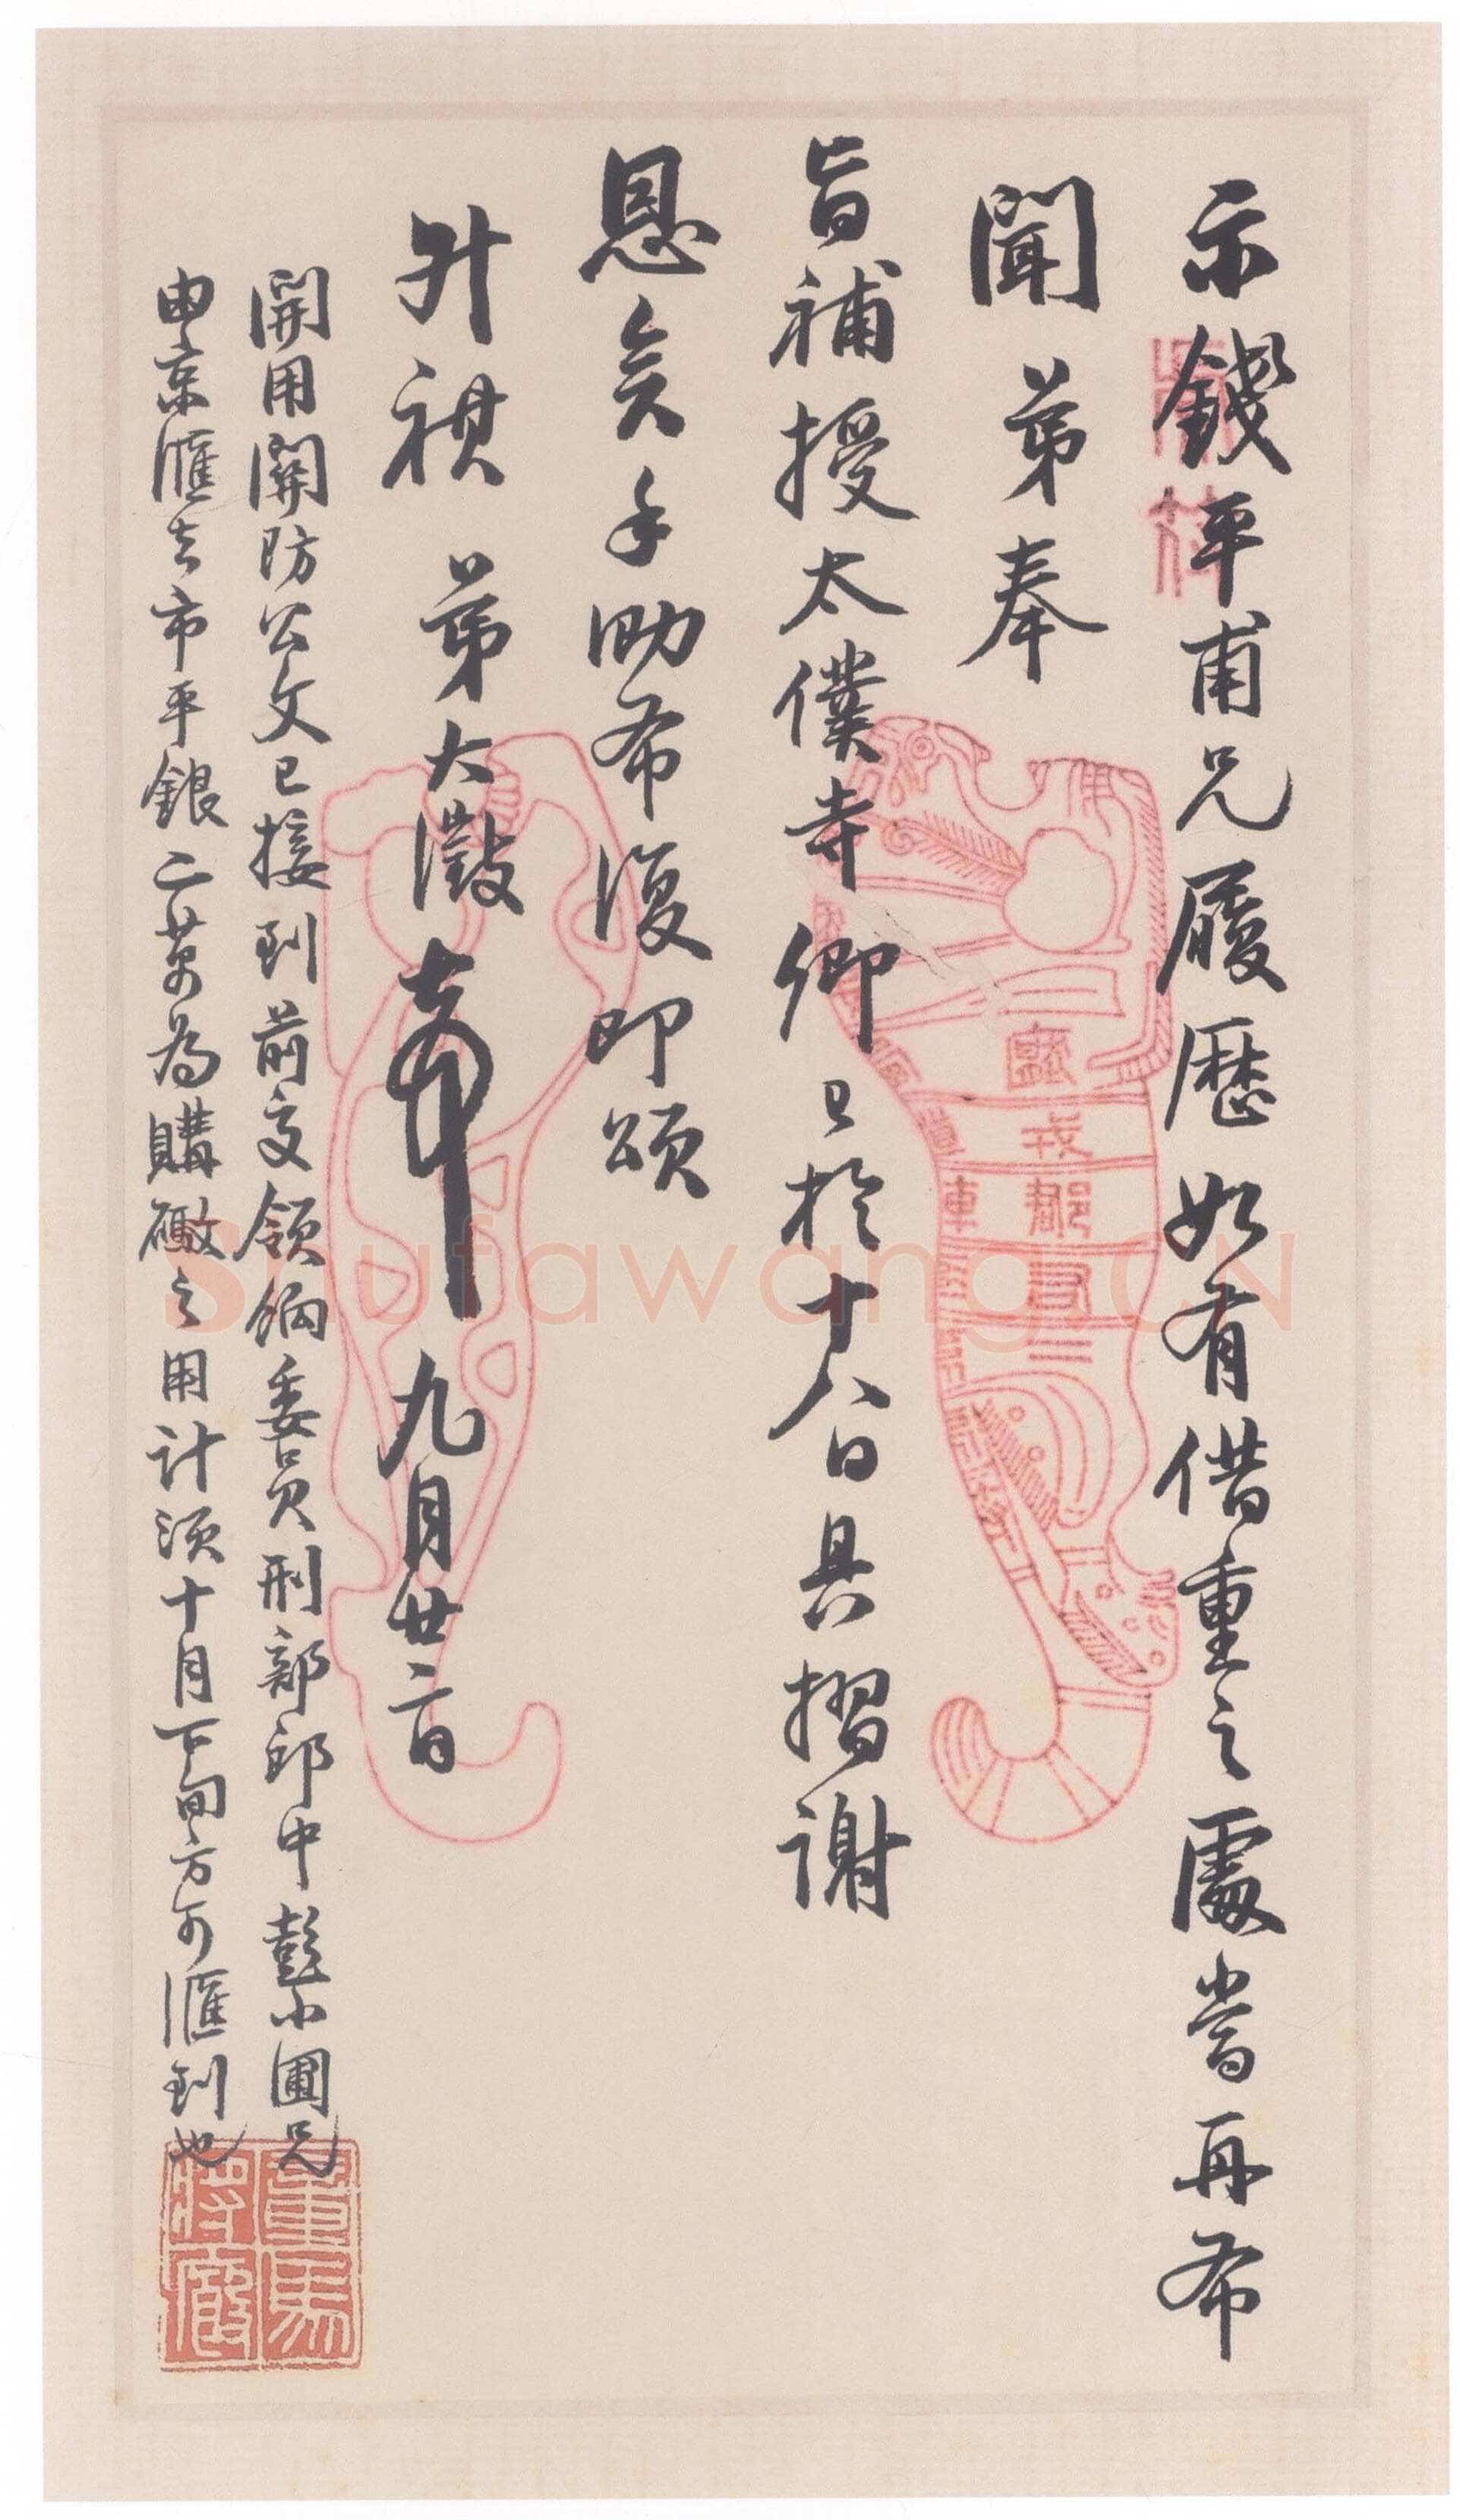 示錢平甫兄履歷如有借重之處當再布
聞弟奉
旨補授太僕寺卿已於十八日具摺謝
恩矣手泐布復即頌
升祺 弟大澂 九月廿二日
開用關防公文已接到前交領餉委員刑部郎中彭小圃兄
由京匯去市平銀二萬為購礮之用計須十月下旬方可匯到也
ShufawangCN